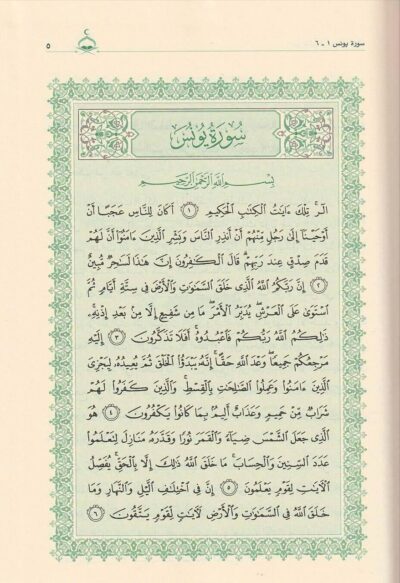 سورة يونس ١ - ٦
٥
سُورَةُ يُونُسَ
بِسْمِ اللَّهِ الرَّحْمَٰنِ الرَّحِيمِ
الٓر ۚ تِلْكَ ءَايَٰتُ ٱلْكِتَٰبِ ٱلْحَكِيمِ ١ أَكَانَ لِلنَّاسِ عَجَبًا أَنْ
أَوْحَيْنَآ إِلَىٰ رَجُلٍ مِّنْهُمْ أَنْ أَنذِرِ ٱلنَّاسَ وَبَشِّرِ ٱلَّذِينَ ءَامَنُوٓا۟ أَنَّ لَهُمْ
قَدَمَ صِدْقٍ عِندَ رَبِّهِمْ ۗ قَالَ ٱلْكَٰفِرُونَ إِنَّ هَٰذَا لَسَٰحِرٌ مُّبِينٌ
٢ إِنَّ رَبَّكُمُ ٱللَّهُ ٱلَّذِى خَلَقَ ٱلسَّمَٰوَٰتِ وَٱلْأَرْضَ فِى سِتَّةِ أَيَّامٍ ثُمَّ
ٱسْتَوَىٰ عَلَى ٱلْعَرْشِ ۖ يُدَبِّرُ ٱلْأَمْرَ ۖ مَا مِن شَفِيعٍ إِلَّا مِنۢ بَعْدِ إِذْنِهِۦ ۚ
ذَٰلِكُمُ ٱللَّهُ رَبُّكُمْ فَٱعْبُدُوهُ ۚ أَفَلَا تَذَكَّرُونَ ٣ إِلَيْهِ
مَرْجِعُكُمْ جَمِيعًا ۖ وَعْدَ ٱللَّهِ حَقًّا ۚ إِنَّهُۥ يَبْدَؤُا۟ ٱلْخَلْقَ ثُمَّ يُعِيدُهُۥ لِيَجْزِىَ
ٱلَّذِينَ ءَامَنُوا۟ وَعَمِلُوا۟ ٱلصَّٰلِحَٰتِ بِٱلْقِسْطِ ۚ وَٱلَّذِينَ كَفَرُوا۟ لَهُمْ
شَرَابٌ مِّنْ حَمِيمٍ وَعَذَابٌ أَلِيمٌۢ بِمَا كَانُوا۟ يَكْفُرُونَ ٤ هُوَ
ٱلَّذِى جَعَلَ ٱلشَّمْسَ ضِيَآءً وَٱلْقَمَرَ نُورًا وَقَدَّرَهُۥ مَنَازِلَ لِتَعْلَمُوا۟
عَدَدَ ٱلسِّنِينَ وَٱلْحِسَابَ ۚ مَا خَلَقَ ٱللَّهُ ذَٰلِكَ إِلَّا بِٱلْحَقِّ ۚ يُفَصِّلُ
ٱلْءَايَٰتِ لِقَوْمٍ يَعْلَمُونَ ٥ إِنَّ فِى ٱخْتِلَٰفِ ٱلَّيْلِ وَٱلنَّهَارِ وَمَا
خَلَقَ ٱللَّهُ فِى ٱلسَّمَٰوَٰتِ وَٱلْأَرْضِ لَءَايَٰتٍ لِّقَوْمٍ يَتَّقُونَ ٦